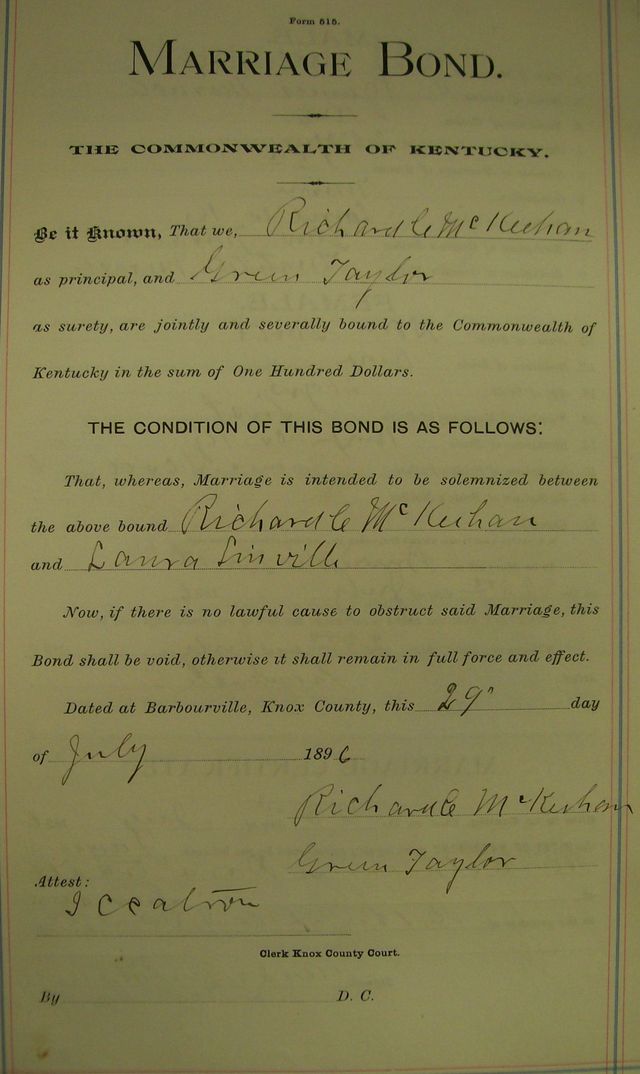 Form 515.
MARRIAGE BOND.
THE COMMONWEALTH OF KENTUCKY.
Be it Known, That we, Richard C McKeehan
as principal, and Green Taylor
as surety, are jointly and severally bound to the Commonwealth of
Kentucky in the sum of One Hundred Dollars.
THE CONDITION OF THIS BOND IS AS FOLLOWS:
That, whereas, Marriage is intended to be solemnized between
the above bound Richard C McKeehan
and Laura Linville
Now, if there is no lawful cause to obstruct said Marriage, this
Bond shall be void, otherwise it shall remain in full force and effect.
Dated at Barbourville, Knox County, this 29" day
of July 1896
Richard C McKeehan
Green Taylor
Attest:
Clerk Knox County Court.
By D. C.